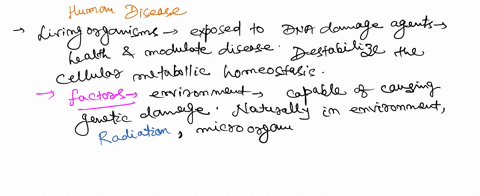 Human Disease
→ Living organisms → exposed to DNA damage agents →
health & modulate disease. Destabilize the
cellular metabollic homeostasis.
→ factors → environment → capable of causing
genetic damage. Naturally in environment,
Radiation, microorganu